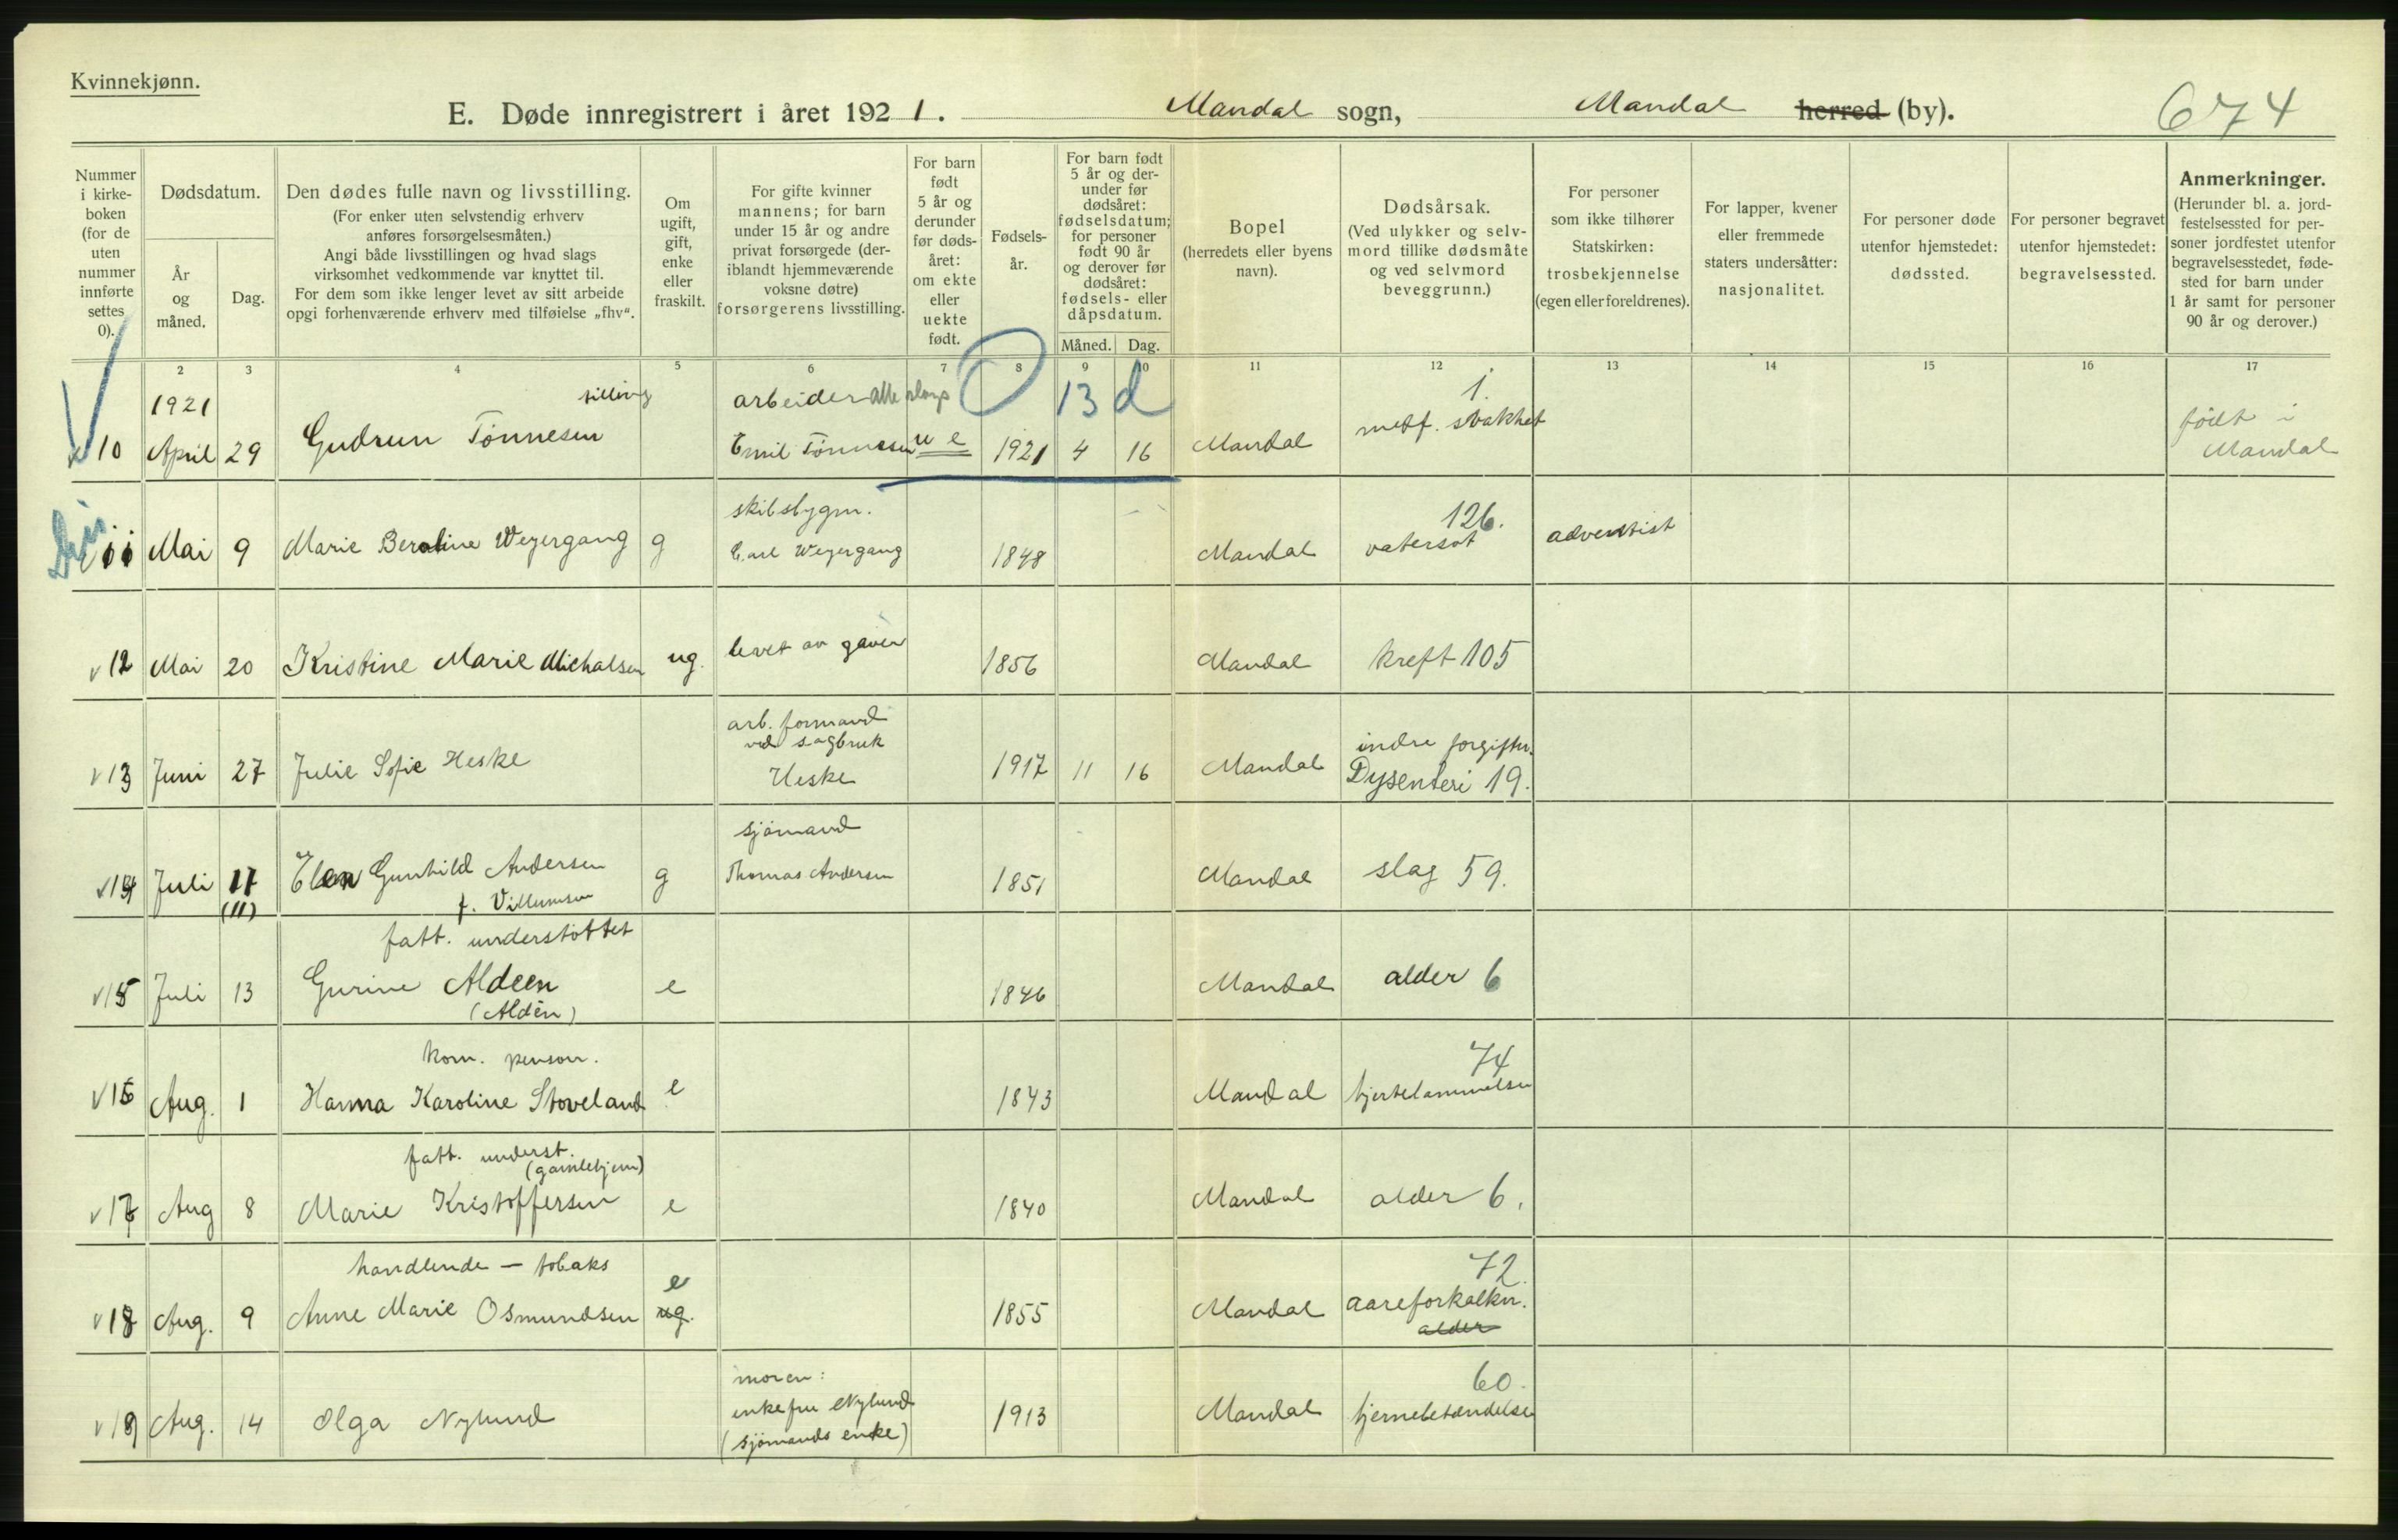 Kvinnekjønn.
E. Døde innregistrert i året 1921. Mandal sogn, Mandal herred (by). 674
Nummer i kirkeboken (for de uten nummer innførte settes 0).
Dødsdatum.
År og måned.
Dag.
Den dødes fulle navn og livsstilling.
(For enker uten selvstendig erhverv anføres forsørgelsesmåten.)
Angi både livsstillingen og hvad slags virksomhet vedkommende var knyttet til.
For dem som ikke lenger levet av sitt arbeide opgi forhenværende erhverv med tilføielse „fhv“.
Om ugift, gift, enke eller fraskilt.
For gifte kvinner mannens; for barn under 15 år og andre privat forsørgede (deriblandt hjemmeværende voksne døtre) forsørgerens livsstilling.
For barn født 5 år og derunder før dødsåret: om ekte eller uekte født.
Fødselsår.
For barn født 5 år og derunder før dødsåret: fødselsdatum; for personer født 90 år og derover før dødsåret: fødsels- eller dåpsdatum.
Måned. Dag.
Bopel
(herredets eller byens navn).
Dødsårsak.
(Ved ulykker og selvmord tillike dødsmåte og ved selvmord beveggrunn.)
For personer som ikke tilhører Statskirken: trosbekjennelse (egen eller foreldrenes).
For lapper, kvener eller fremmede staters undersåtter: nasjonalitet.
For personer døde utenfor hjemstedet: dødssted.
For personer begravet utenfor hjemstedet: begravelsessted.
Anmerkninger.
(Herunder bl. a. jordfestelsessted for personer jordfestet utenfor begravelsesstedet, fødested for barn under 1 år samt for personer 90 år og derover.)
2 3 4 5 6 7 8 9 10 11 12 13 14 15 16 17
1921 tilling arbeider alle slags 13 d 1.
10 April 29 Gudrun Tønnesen Emil Tønnessen u e 1921 4 16 Mandal medf. svakhet født i Mandal
skibsbygm. 126.
11 Mai 9 Marie Beraline Weyergang g Carl Weyergang 1848 Mandal vatersot adventist
12 Mai 20 Kristine Marie Michalsen ug. levet av gaver 1856 Mandal kreft 105
arb. formand
ved sagbruk indre forgiftn.
13 Juni 27 Julie Sofie Heske Heske 1917 11 16 Mandal Dysenteri 19.
sjømand
14 Juli 17 Elen Gunhild Andersen g Thomas Andersen 1851 Mandal slag 59.
(11) f. Villumsen
fatt. understøttet
15 Juli 13 Gurine Aldeen e 1846 Mandal alder 6
(Aldèn)
kom. pension. 74
16 Aug. 1 Hanna Karoline Stoveland e 1843 Mandal hjertelammelse
fatt. underst.
(gamlehjem)
17 Aug 8 Marie Kristoffersen e 1840 Mandal alder 6.
handlende — tobaks e 72.
18 Aug. 9 Anne Marie Osmundsen ug. 1855 Mandal aareforkalkn.
alder
moren: 60.
19 Aug. 14 Olga Nylund enkefru Nylund 1913 Mandal hjernebetændelse
(sjømands enke)